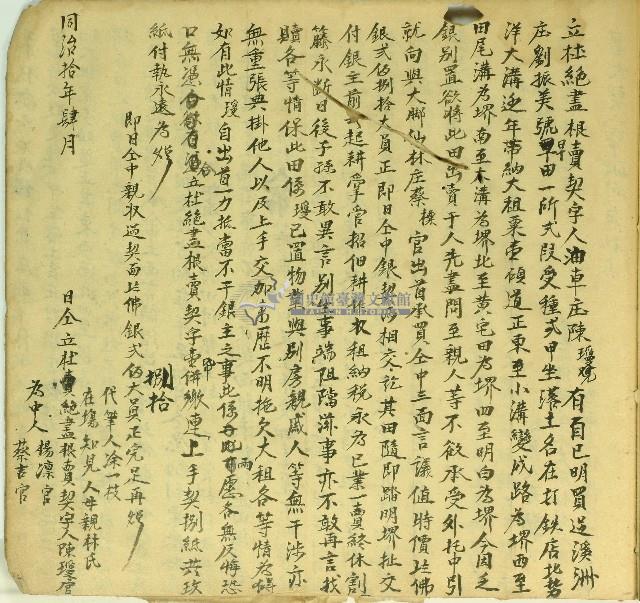 立杜絕盡根賣契字人油車庄陳璦官有自己明買過溪洲
庄劉振美號旱田一所弍段受種弍甲坐落土名在打鉄店北勢
洋大溝邊年帶納大租粟壹碩道正東至小溝變成路為堺西至
田尾溝為堺南至木溝為堺北至黃宅田為堺四至明白為堺今因乏
銀別置欲將此田出賣于人先盡問至親人等不欲承受外托中引
就向與大脚仙林庄蔡 官出首承買仝中三面言議值時價
佛
銀弍佰捌拾大員正即日仝中銀契 相交訖其田隨即踏明堺址交
付銀主前去起耕掌管招佃耕 收租納稅永為己業一賣終休割
籐永斷日後子孫不敢異言別生事端阻隔滋事亦不敢再言找
贖各等情保此田係璦己置物業與別房親戚人等無干涉亦
無重張典掛他人以及上手交加來歷不明拖欠大租各等情為碍
如有此情璦自出首一力抵當不干銀主之事此係 愿各無反悔恐
口無憑 立杜絕盡根賣契字壹 併繳連上手契捌紙共玖
紙付執永遠為炤
即日仝中親收過契面 佛銀弍佰 大員正完足再炤
捌拾
代筆人凃一枝
在塲知見人母親林氏
為中人 楊凛官
蔡吉官
同治拾年肆月 日仝立杜賣絕盡根賣契字人陳璦官
國史館臺灣文獻館
TAIWAN HISTORICA